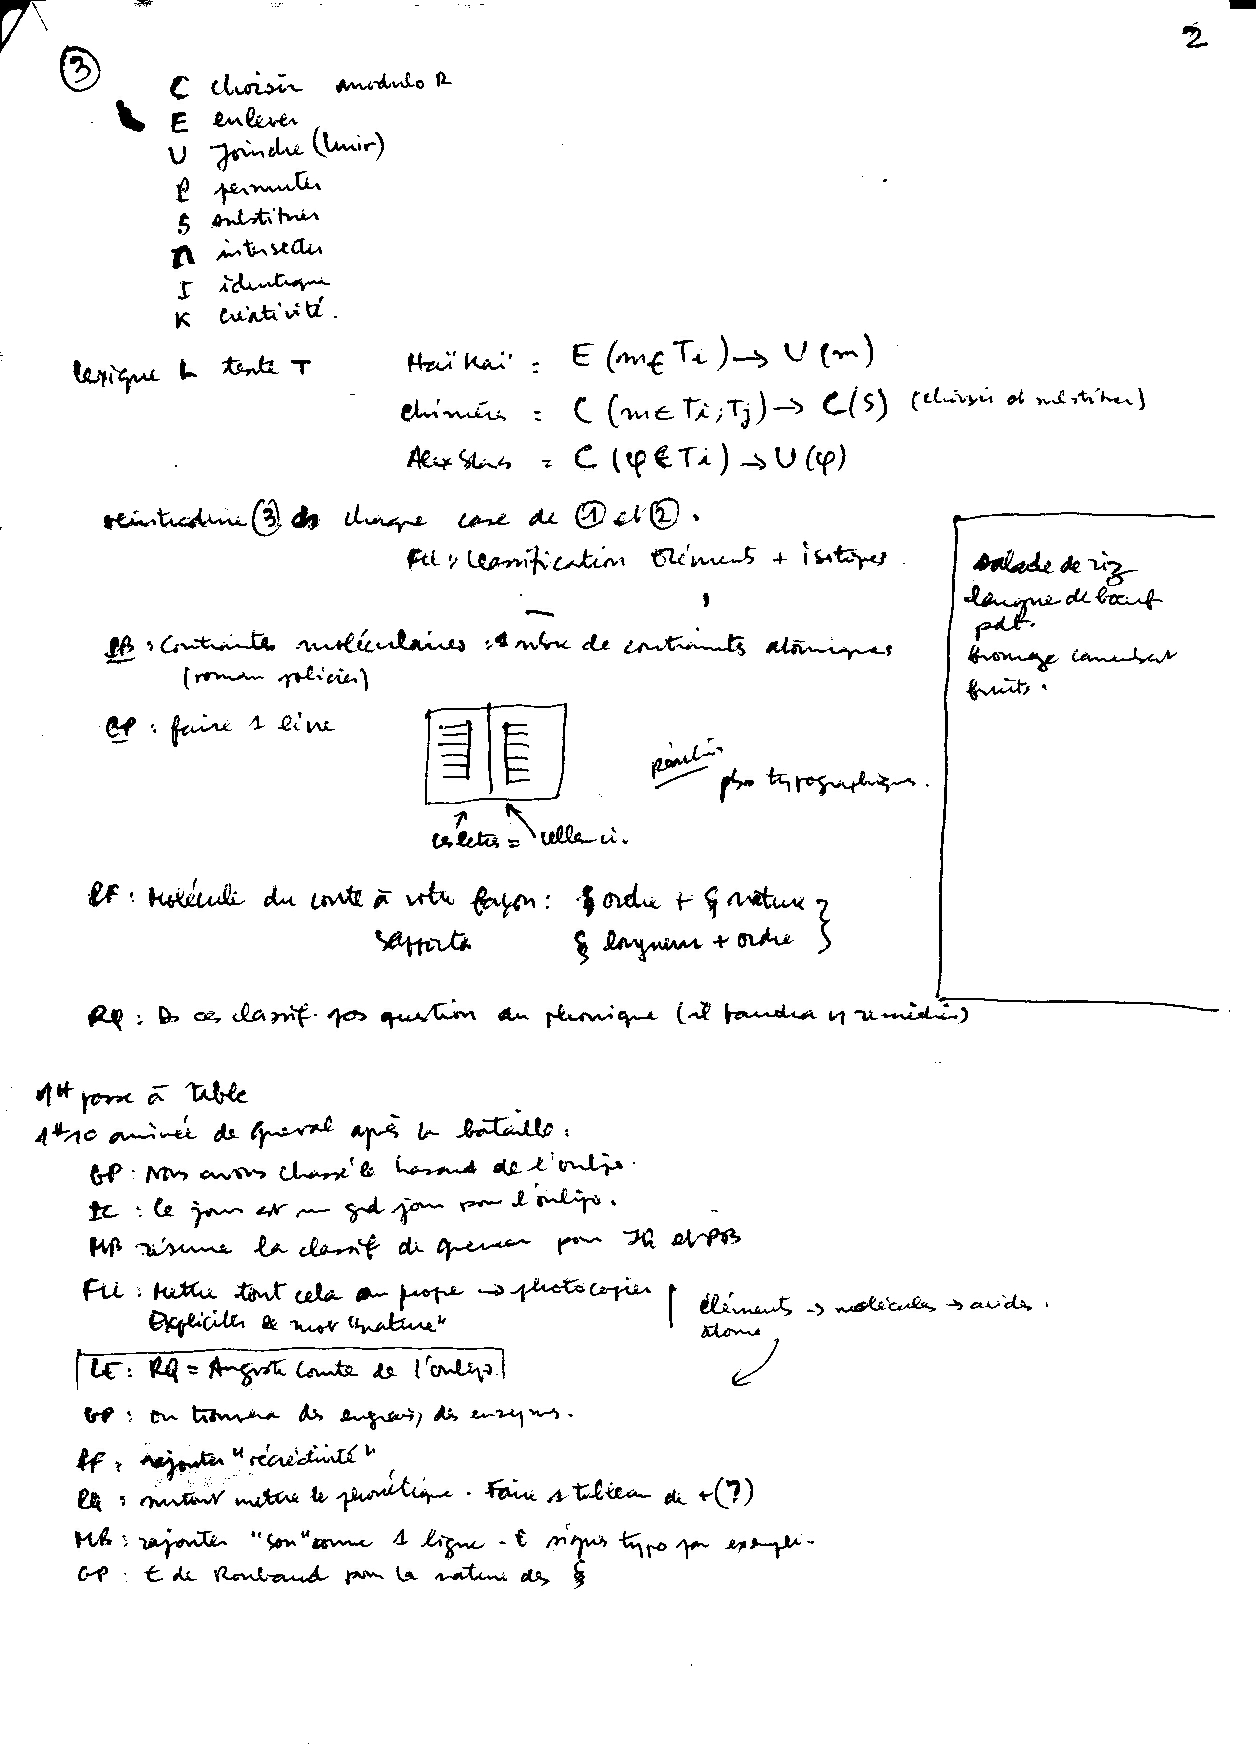 2
③
C choisir modulo R
E enlever
U joindre (Unir)
P permuter
S substituer
∩ intersecter
I identique
K créativité.
lexique L texte T
Haï Kaï = E (m∈Ti) → U(m)
chimère = C (m∈Ti, Tj) → C(S) (choisir et substituer)
= C (φ∈Ti) → U(φ)
réintroduire ③ ds chaque case de ① et ②.
FLL : classification éléments + isotopes
PB : Contraintes moléculaires : nbre de contraintes atomiques
(roman policier)
GP : faire 1 livre
ces lettres = celles-ci.
plus typographiques.
salade de riz
langue de bœuf
pdt.
fromage camembert
fruits.
PF : Molécule du conte à votre façon : § ordre + § nature
§ longueur + ordre
RQ : Ds ces classif. pas question du phonique (il faudra y remédier)
1H passe à table
1H10 arrivée de Queval après la bataille :
GP : Nous avons chassé le hasard de l'oulipo.
IC : Ce jour est un gd jour pour l'oulipo.
MB résume la classif de Queneau pour JQ et PB
FLL : Mettre tout cela au propre → photocopier
Expliciter le mot "nature"
éléments → molécules → acides.
atome
LE : RQ = Auguste Comte de l'oulipo
GP : on trouvera des engrais, des enzymes.
PF : rajouter "récréativité"
RQ : surtout mettre le phonétique. Faire 1 tableau de + (?)
MB : rajouter "son" comme 1 ligne - E signes typo par exemple.
GP : E de Roubaud pour la nature des §